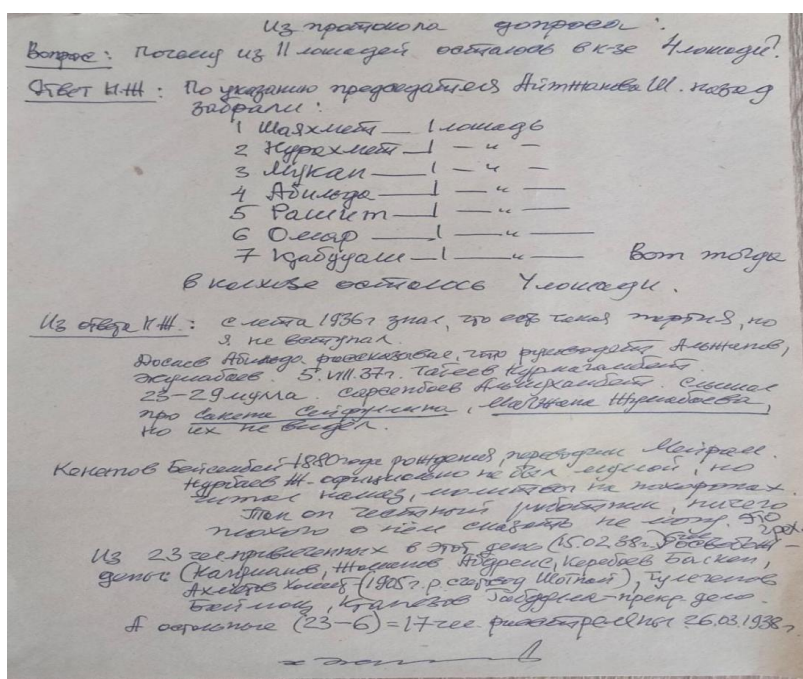 Из протокола допроса:
Вопрос: Почему из 11 лошадей осталось в к-зе 4 лошади?
Ответ Н.Ж: По указанию председателя Айтжанова Ш. назад
забрали:
1 Шаяхмет — 1 лошадь
2 Нурахмет — 1 — " —
3 Мукан — 1 — " —
4 Абильда — 1 — " —
5 Рашит — 1 — " —
6 Омар — 1 — " —
7 Қабудаш — 1 — " — Вот тогда
в колхозе осталось 4 лошади.
Из ответа Н.Ж.: с лета 1936г знал, что есть такая партия, но
я не вступал.
Досаев Абильда рассказывал, что руководят Альжанов,
Жумабаев. 5.VIII.37г. Тайеев Курмагамбет.
23-29 мулла. Сарсенбаев Слышал
про Сакена Сейфуллина, Магжана Жумабаева,
но их не видел.
Кенетов Бейсембай-1880 года рождения, переводчик Мейрам.
Нурбаев Ж-официально не был муллой, но
читал намаз, молитвы на похоронах.
Так он честный работник, ничего
плохого о нём сказать не могу. Это
грех.
Из 23 чел. привлеченных в этот день (15.02.38г)
(Калжанов, Жаманов Абдраис, Керебаев Балкен,
Ахметов (1905г.р. счетовод), Тулегенов
Баймош, Габдулла-прекр. дело.
А остальные (23-6)=17 чел. расстреляны 26.03.1938г.